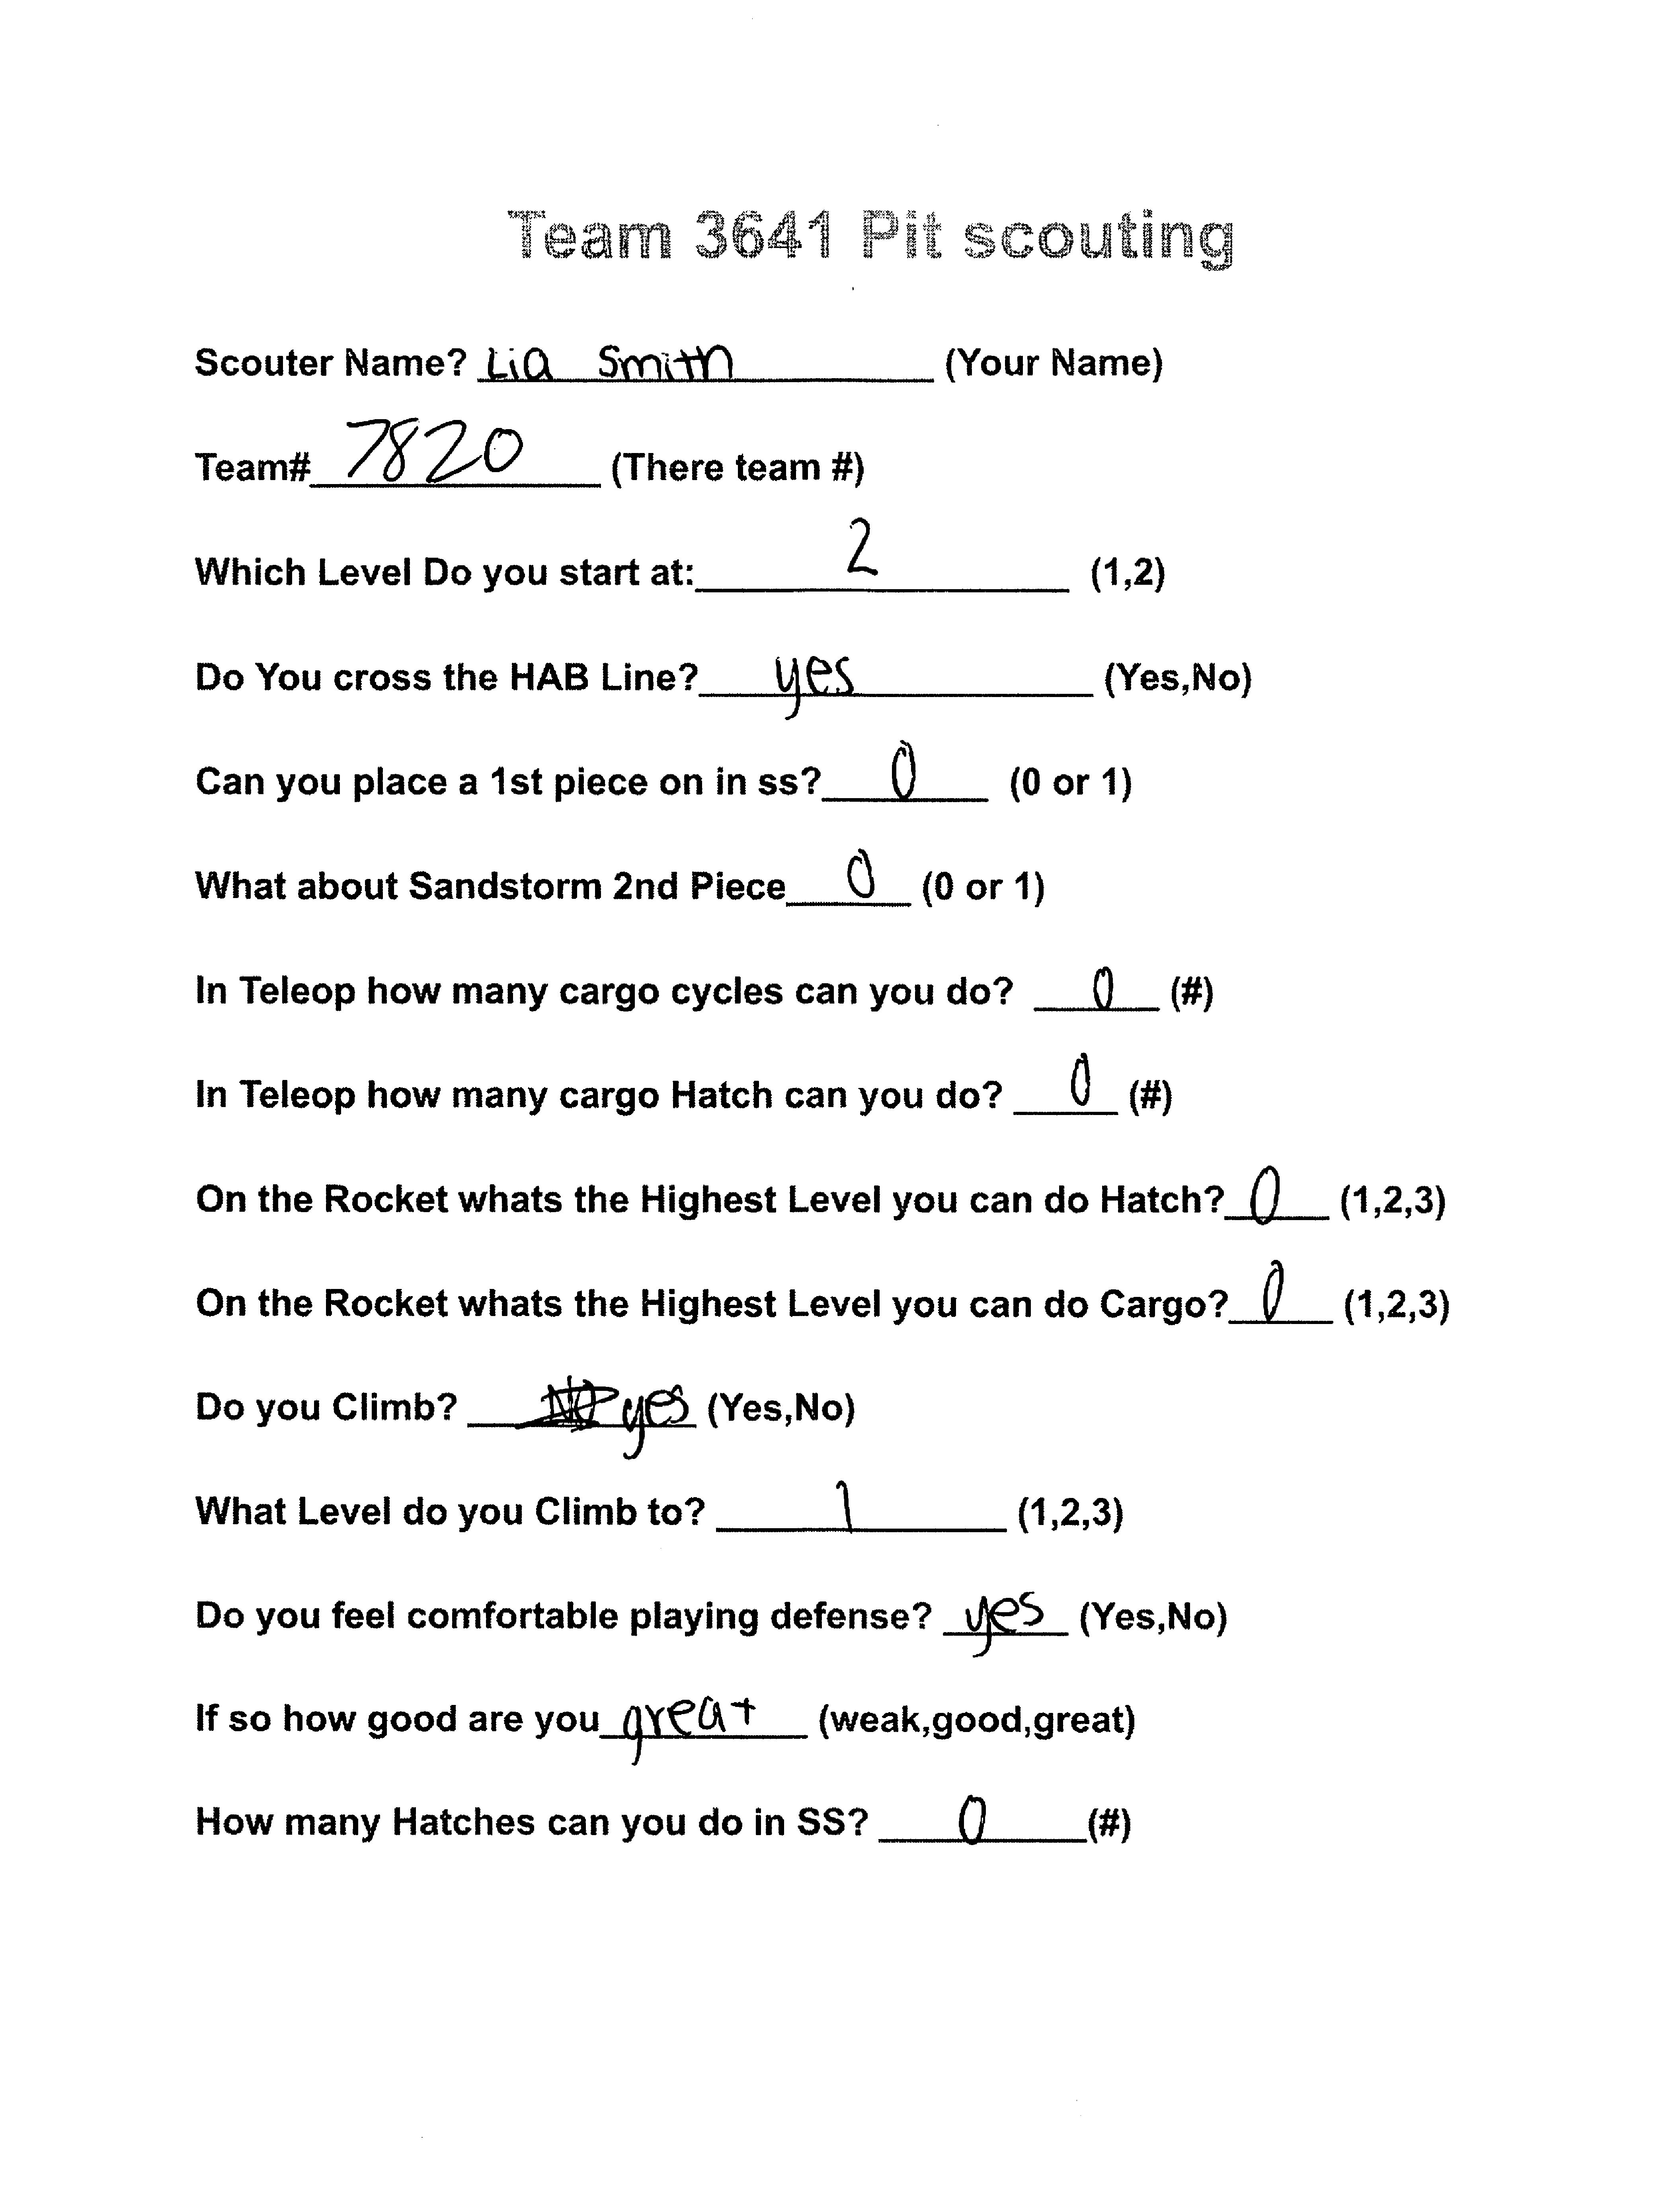 Team 3641 Pit scouting
Scouter Name? Lia Smith (Your Name)
Team# 7820 (There team #)
Which Level Do you start at: 2 (1,2)
Do You cross the HAB Line? yes (Yes,No)
Can you place a 1st piece on in ss? 0 (0 or 1)
What about Sandstorm 2nd Piece 0 (0 or 1)
In Teleop how many cargo cycles can you do? 0 (#)
In Teleop how many cargo Hatch can you do? 0 (#)
On the Rocket whats the Highest Level you can do Hatch? 0 (1,2,3)
On the Rocket whats the Highest Level you can do Cargo? 0 (1,2,3)
Do you Climb? yes (Yes,No)
What Level do you Climb to? 1 (1,2,3)
Do you feel comfortable playing defense? yes (Yes,No)
If so how good are you great (weak,good,great)
How many Hatches can you do in SS? 0 (#)